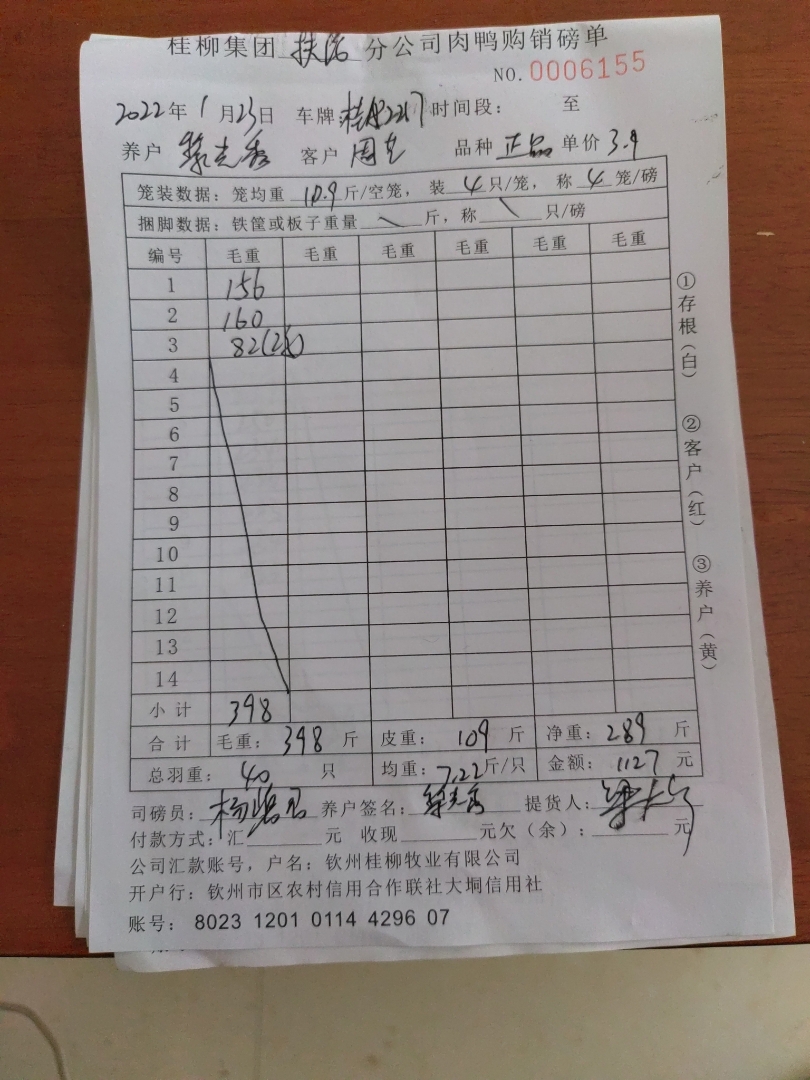 桂柳集团 分公司肉鸭购销磅单
NO.0006155
2022年1月23日 车牌:桂 2217 时间段: 至
养户 客户 周 品种 正品 单价 3.9
笼装数据:笼均重 10.9 斤/空笼,装 4 只/笼,称 4 笼/磅
捆脚数据:铁筐或板子重量 \ 斤,称 \ 只/磅
编号 毛重 毛重 毛重 毛重 毛重 毛重
1 156
2 160
3 82(2)
4
5
6
7
8
9
10
11
12
13
14
小计 398
合计 毛重:398斤 皮重:109斤 净重:289斤
总羽重:40只 均重:7.22斤/只 金额:1127元
司磅员:杨 养户签名: 提货人:
付款方式:汇 元 收现 元欠(余): 元
公司汇款账号,户名:钦州桂柳牧业有限公司
开户行:钦州市区农村信用合作联社大垌信用社
账号:8023 1201 0114 4296 07
①存根(白)
②客户(红)
③养户(黄)